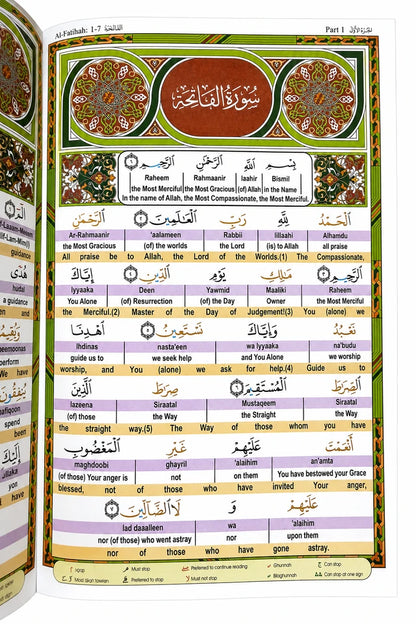 Al-Fatihah: 1-7 الفاتحة
Part 1 الجزء الأول
سورة الفاتحة
بِسْمِ اللّٰهِ الرَّحْمٰنِ الرَّحِيْمِ
Bismil laahir Rahmaanir Raheem
in the Name (of) Allah the Most Gracious the Most Merciful
In the name of Allah, the Most Compassionate, the Most Merciful.
اَلْحَمْدُ لِلّٰهِ رَبِّ الْعٰلَمِيْنَ ١ الرَّحْمٰنِ
Alhamdu lillaahi Rabbil 'aalameen Ar-Rahmaanir
all praise (is) to Allah the Lord (of) the worlds the Most Gracious
All praise be to Allah, the Lord of the Worlds.(1) The Compassionate,
الرَّحِيْمِ ٢ مٰلِكِ يَوْمِ الدِّيْنِ ٣ اِيَّاكَ
Raheem Maaliki Yawmid Deen Iyyaaka
the Most Merciful Owner of the Day (of) Resurrection You Alone
the Merciful.(2) Master of the Day of Judgement!(3) You (alone) we
نَعْبُدُ وَاِيَّاكَ نَسْتَعِيْنُ ٤ اهْدِنَا
na'budu wa Iyyaaka nasta'een Ihdinas
we worship and You Alone we seek help guide us to
worship, and You (alone) we ask for help.(4) Guide us to
الصِّرَاطَ الْمُسْتَقِيْمَ ٥ صِرَاطَ الَّذِيْنَ
Siraatal Mustaqeem Siraatal lazeena
the Way the straight the Way (of) those
the straight way.(5) The Way of those whom you have
اَنْعَمْتَ عَلَيْهِمْ غَيْرِ الْمَغْضُوْبِ
an'amta 'alaihim ghayril maghdoobi
You have bestowed your Grace on them not (of those) Your anger is
blessed, not of those who have invited Your anger,
عَلَيْهِمْ وَ لَا الضَّآلِّيْنَ
'alaihim wa lad daaalleen
upon them nor nor (of those) who went astray
nor of those who have gone astray.
Must stop Preferred to continue reading Ghunnah Can stop
Preferred to stop Must not stop Bilaghunnah Can stop at one sign